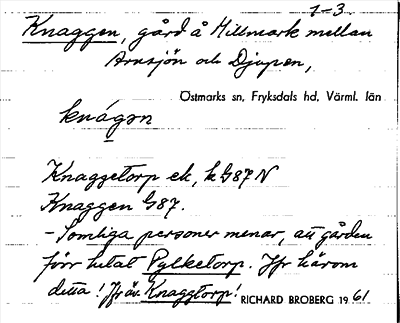 1-3
Knaggen, gård å Hillmark mellan
Arnsjön och Djupen,
Östmarks sn, Fryksdals hd, Värml. län
knágən
Knaggetorp ek, k G87 N
Knaggen G87.
- Somliga personer menar, att gården
förr hetat Pylketorp. Jfr härom
detta! Jfr äv. Knaggtorp!
RICHARD BROBERG 1961